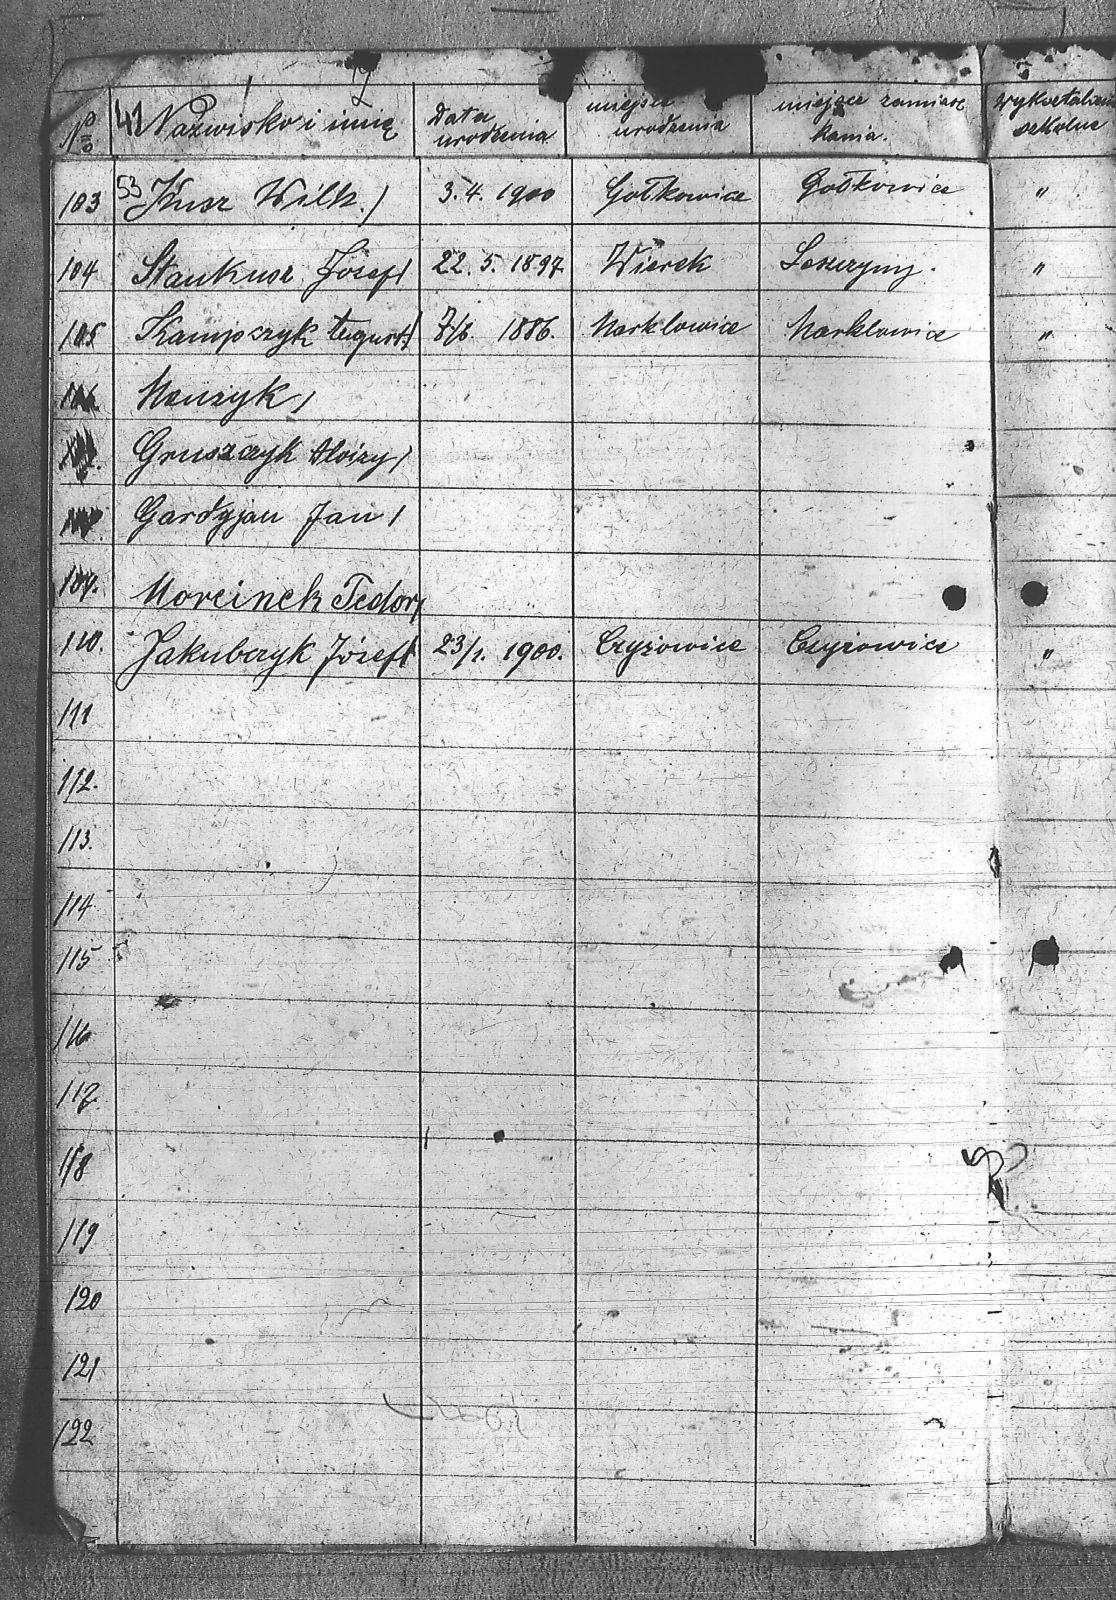 7
No 41 Nazwisko i imię Data urodzenia miejsce urodzenia miejsce zamieszkania. wykształcenie szkolne
103 53 Kusz Wilh. 3.4.1900 Gołkowice Gołkowice "
104 Stankusz Józef 22.5.1897 Wierek Leszczyny. "
105 Kampszyk 7/6 1886. Marklowice Marklowice "
Mouzyk
Gruszczyk Aloizy
Gardyjan Jan
109. Morcinek Teodor
110. Jakubczyk Józef 23/1. 1900. Czyżowice Czyżowice "
111
112.
113.
114
115
116
117.
118
119
120
121
122